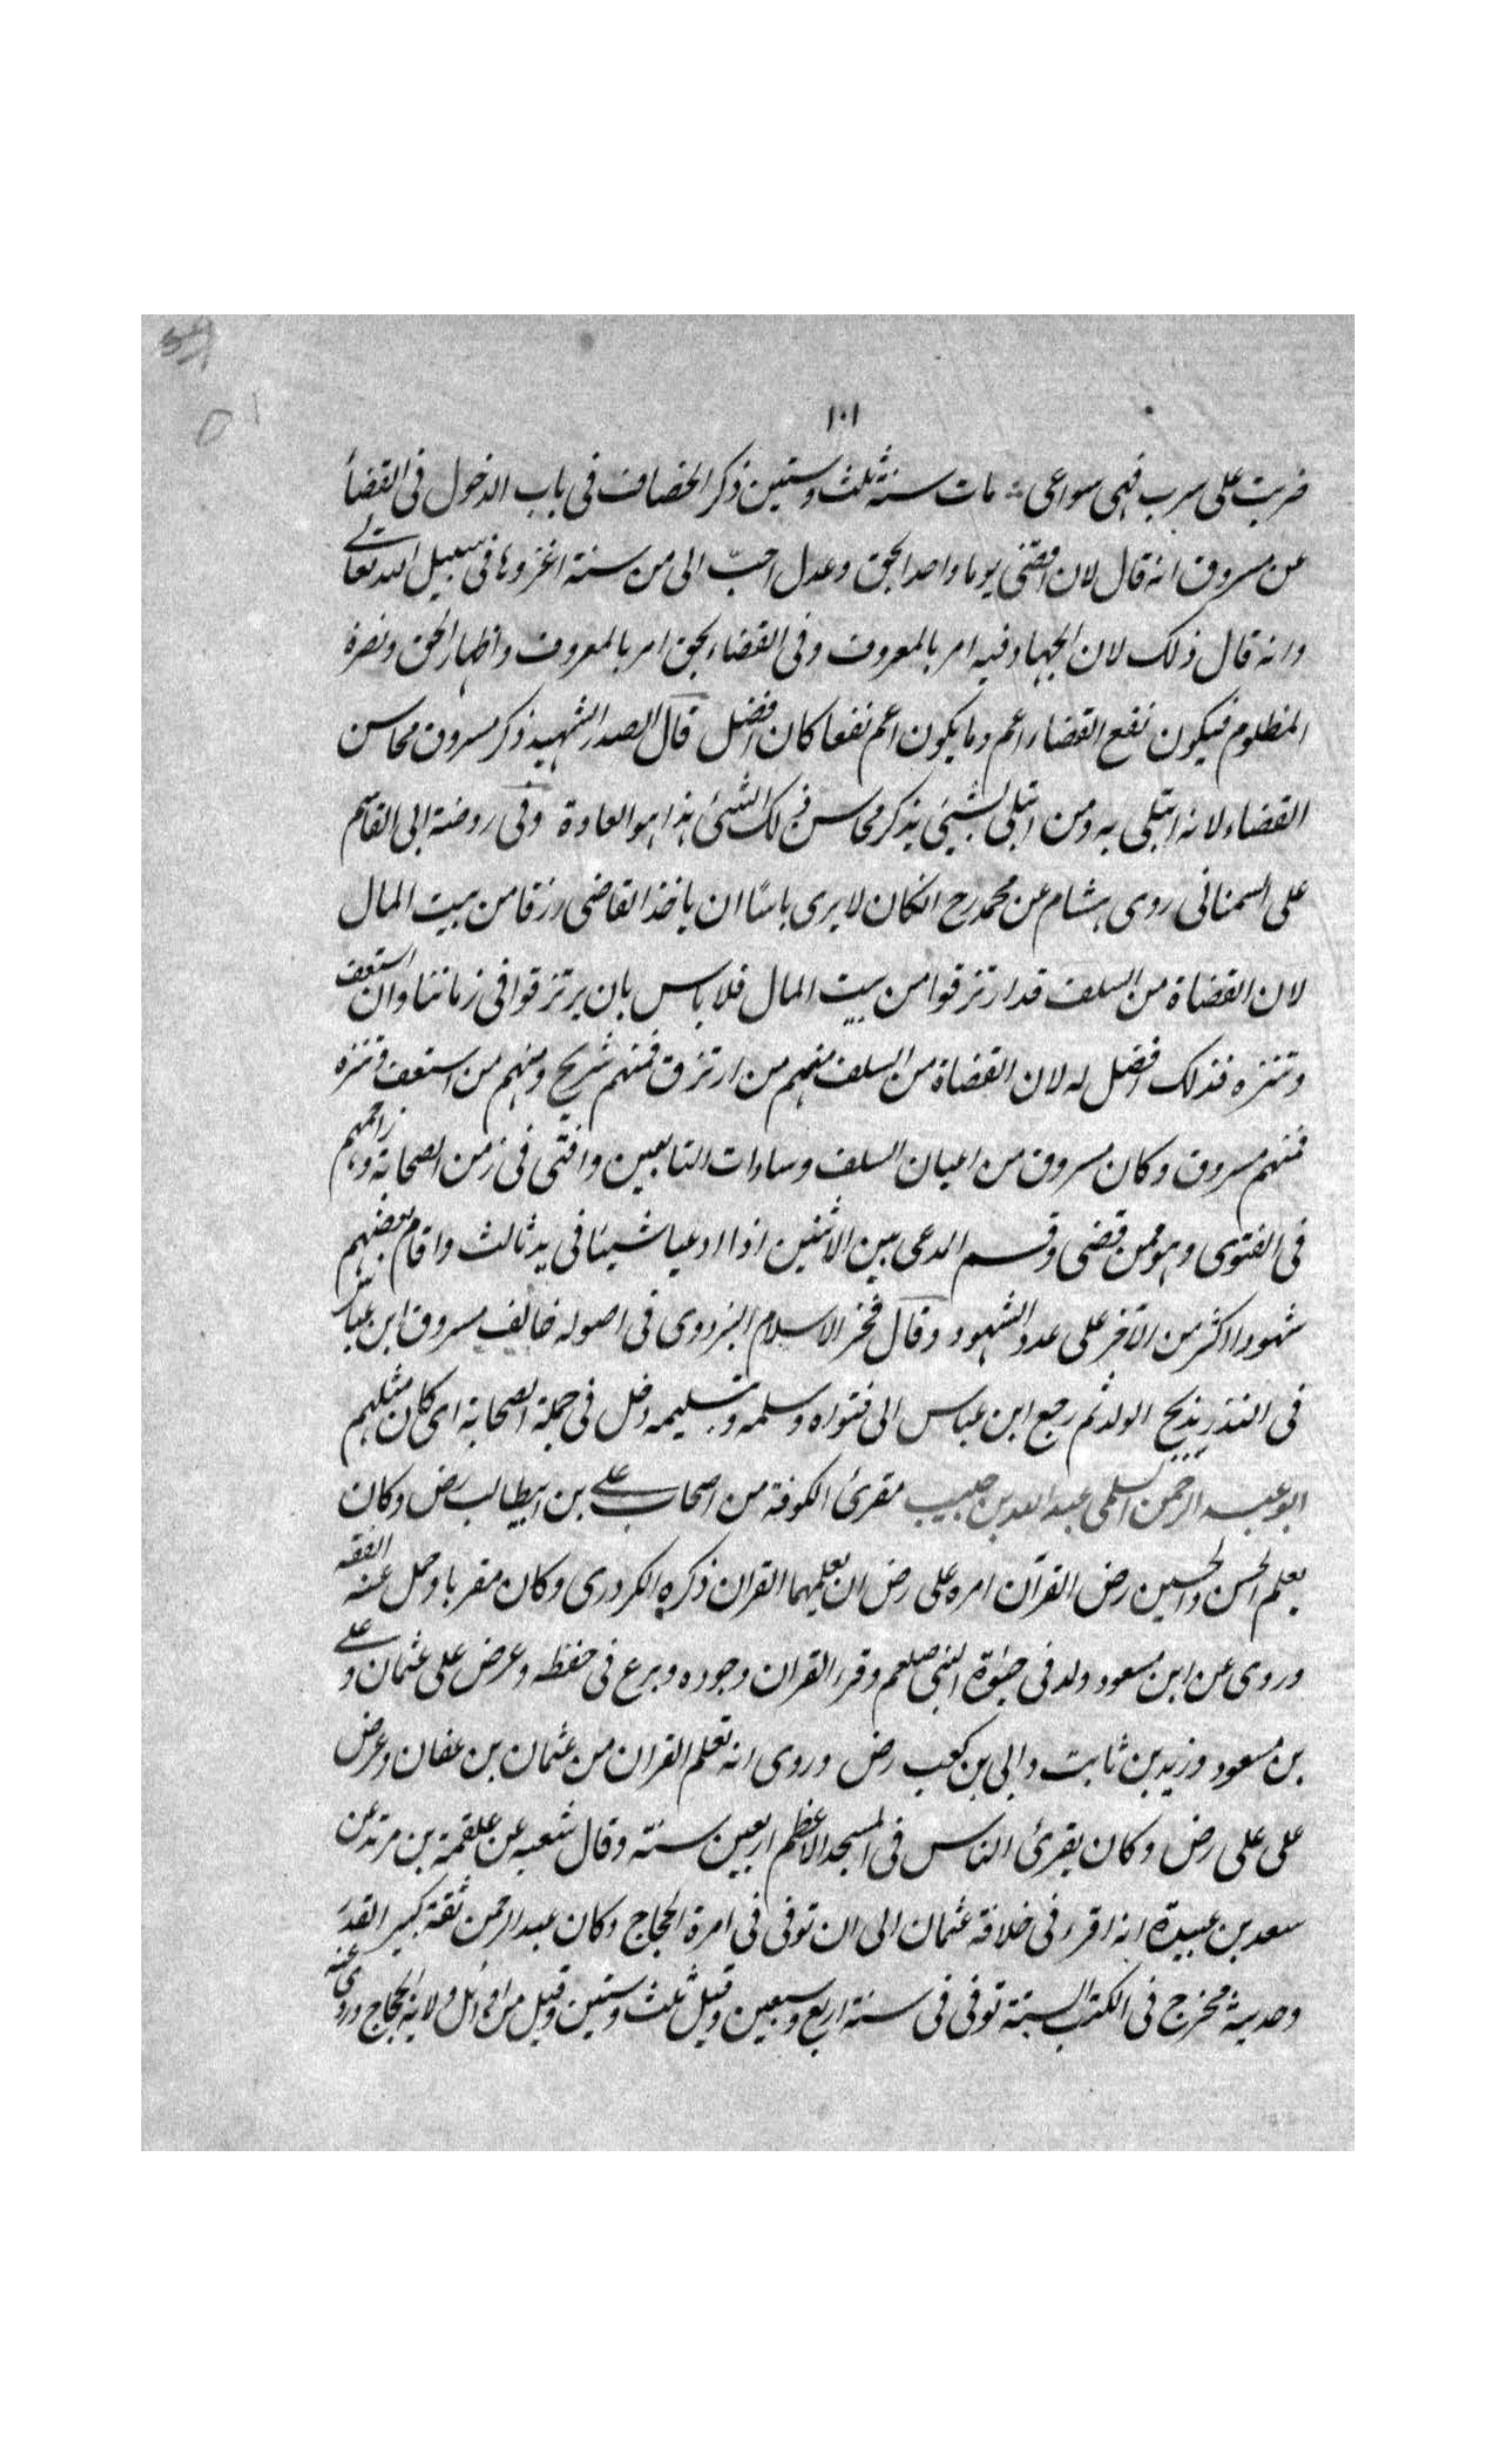 ١٠١
ضربت على سرب فهى سواعى مات سنة ثلث وستين ذكر الخصاف فى باب الدخول فى القضأ
عن مسروق انه قال لان اقضى يوما واحدا بحق وعدل احبّ الى من سنة اغزوها فى سبيل الله تعالى
وانه قال ذلك لان الجهاد فيه امر بالمعروف وفى القضاء بحق امر بالمعروف واظهار الحق ونصرة
المظلوم فيكون نفع القضاء اعم وما يكون اعم نفعا كان افضل قال الصدر الشهيد ذكر مسروق محاسن
القضاء لانه ابتلى به ومن ابتلى بشيئ يذكر محاسن ذلك الشئ هذا هو العادة وفى روضة ابى القاسم
على السمنانى روى هشام عن محمد رح انه كان لا يرى باسًا ان ياخذ القاضى رزقا من بيت المال
لان القضاة من السلف قد ارتزقوا من بيت المال فلا باس بان يرتزقوا فى زماننا وان استعف
وتنزه فذلك افضل له لان القضاة من السلف منهم من ارتزق فمنهم شريح ومنهم من استعف وتنزه
فمنهم مسروق وكان مسروق من اعيان السلف وسادات التابعين وافتى فى زمن الصحابة وزاحمهم
فى الفتوى وهو ممن قضى وقسم المدعى بين الاثنين اذا ادعيا شيئا فى يد ثالث واقام بعضهم
شهودا اكثر من الآخر على عدد الشهود وقال فخر الاسلام البزدوى فى اصوله خالف مسروق ابن عباس
فى النذر بذبح الولد ثم رجع ابن عباس الى فتواه وسلمه وبتسليمه دخل فى جملة الصحابة اى كان مثلهم
ابو عبد الرحمن السلمى عبد الله بن حبيب مقرئ الكوفة من اصحاب على بن ابيطالب رض وكان
يعلم الحسن والحسين رض القرآن امره على رض ان يعلمهما القران ذكره الكردرى وكان مقربا وحمل عنه الفقه
وروى عن ابن مسعود ولد فى حيوٰة النبى صلعم وقرء القران وجوده وبرع فى حفظه وعرض على عثمان وعلى
بن مسعود وزيد بن ثابت وابى بن كعب رض وروى انه تعلم القران من عثمان بن عفان وعرض
على على رض وكان يقرئ الناس فى المسجد الاعظم اربعين سنة وقال شعبه عن علقمة بن مرثد عن
سعد بن عبيدة انه اقرء فى خلافة عثمان الى ان توفى فى امرة الحجاج وكان عبد الرحمن ثقة كبير القدر
وحديثه مخرج فى الكتب الستة توفى فى سنة اربع وسبعين وقيل ثلث وستين وقيل من اوائل ولاية الحجاج وروى عنه